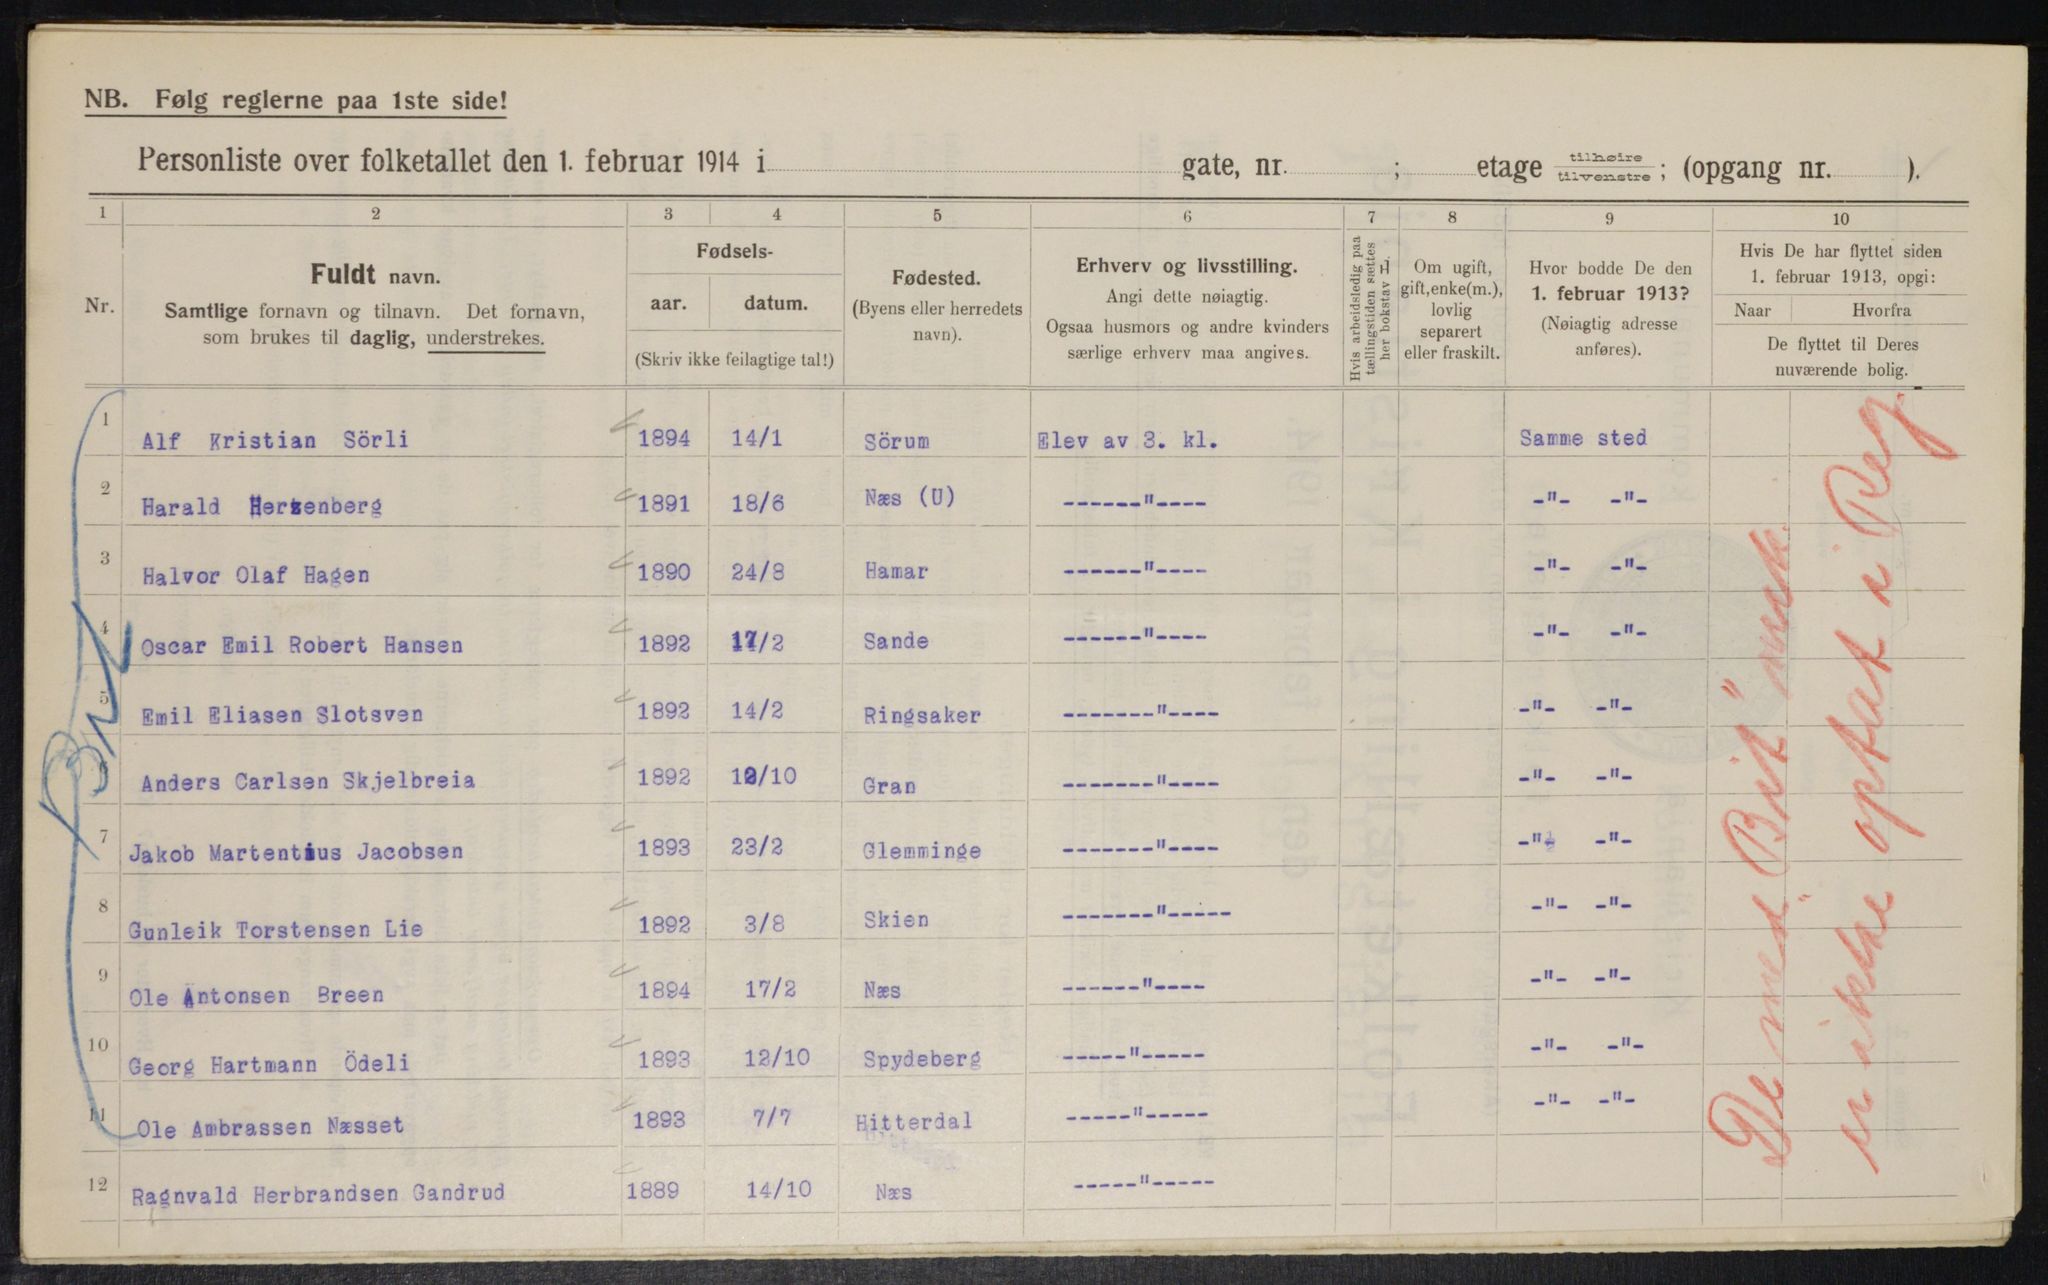 NB. Følg reglerne paa 1ste side!
Personliste over folketallet den 1. februar 1914 i gate, nr. ; etage tilhøire tilvenstre ; (opgang nr. ).
1 2 3 4 5 6 7 8 9 10
Nr.
Fuldt navn.
Samtlige fornavn og tilnavn. Det fornavn,
som brukes til daglig, understrekes.
Fødsels-
aar. datum.
(Skriv ikke feilagtige tal!)
Fødested.
(Byens eller herredets
navn).
Erhverv og livsstilling.
Angi dette nøiagtig.
Ogsaa husmors og andre kvinders
særlige erhverv maa angives.
Hvis arbeidsledig paa
tællingstiden sættes
her bokstav H.
Om ugift,
gift, enke(m.),
lovlig
separert
eller fraskilt.
Hvor bodde De den
1. februar 1913?
(Nøiagtig adresse
anføres).
Hvis De har flyttet siden
1. februar 1913, opgi:
Naar Hvorfra
De flyttet til Deres
nuværende bolig.
1 Alf Kristian Sörli 1894 14/1 Sörum Elev av 3. kl. Samme sted
2 Harald Herzenberg 1891 18/6 Næs (U) ------"---- -"- -"-
3 Halvor Olaf Hagen 1890 24/8 Hamar ------"---- -"- -"-
4 Oscar Emil Robert Hansen 1892 17/2 Sande ------"---- -"- -"-
5 Emil Eliasen Slotsven 1892 14/2 Ringsaker -------"---- -"- -"-
6 Anders Carlsen Skjelbreia 1892 /10 Gran -------"---- -"- -"-
7 Jakob Martentius Jacobsen 1893 23/2 Glemminge -------"---- -"- -"-
8 Gunleik Torstensen Lie 1892 3/8 Skien -------"----- -"- -"-
9 Ole Antonsen Breen 1894 17/2 Næs ------"---- -"- -"-
10 Georg Hartmann Ödeli 1893 12/10 Spydeberg -----"----- -"- -"-
11 Ole Ambrassen Næsset 1893 7/7 Hitterdal -----"----- -"- -"-
12 Ragnvald Herbrandsen Gandrud 1889 14/10 Næs -----"-----
De med "Bit" merk.
er ikke optat i Reg.